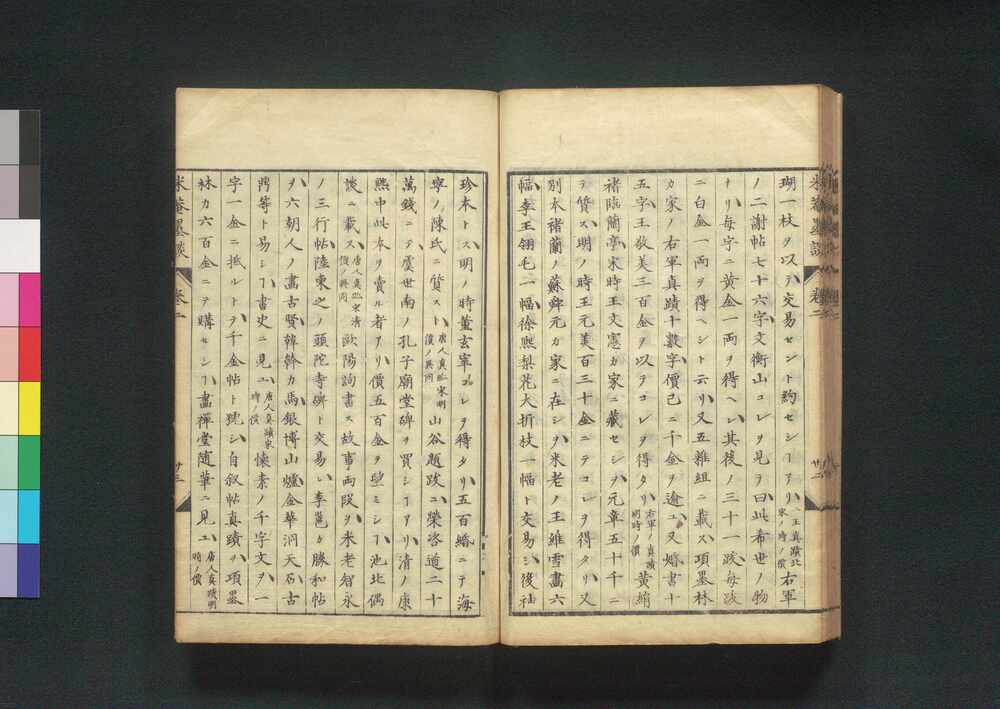 瑚一枝ヲ以テ交易セント約セシヿアリ、二王真蹟北宋ノ時ノ價右軍
ノ二謝帖七十六字文衡山コレヲ見テ曰此希世ノ物
トリ毎字ニ黄金一両ヲ得ヘシ其後ノ三十一跋毎跋
ニ白金一両ヲ得ヘシト云リ又五雜組ニ載ス項墨林
カ家ノ右軍真蹟十數字價已ニ千金ヲ逾ユ又婚書十
五字王敬美三百金ヲ以テコレヲ得タリ右軍ノ真蹟明時ノ價黄絹
褚臨蘭亭宋時王文惠カ家ニ藏セシヲ元章五十千ニ
テ質ス明ノ時王元美百三十金ニテコレヲ得タリ又
別本褚蘭ノ蘇舜元カ家ニ在シヲ米老ノ王維雪畫六
幅李王翎毛一幅徐熙梨花大折枝一幅ト交易シ後袖
珍本トス明ノ時董玄宰コレヲ得タリ五百緡ニテ海
寧ノ陳氏ニ質スト唐人真臨宋明價ノ異同山谷題跋ニ榮咨道二十
萬錢ニテ虞世南ノ孔子廟堂碑ヲ買シヿアリ清ノ康
熙中此本ヲ賣ル者アリ價五百金ヲ望ミシヿ池北偶
談ニ載ス唐人真臨宋清價ノ異同歐陽詢書ス故事兩段ヲ米老智永
ノ三行帖陸柬之ノ頭陀寺碑ト交易シ李邕カ勝和帖
ヲ六朝人ノ畫古賢韓幹カ馬銀博山爐金華洞天石古
鼎等ト易シヿ書史ニ見ユ唐人真蹟宋時ノ價懐素ノ千字文ヲ一
字一金ニ抵ルトヲ千金帖ト號シ自叙帖真蹟ヲ項墨
林カ六百金ニテ購セシヿ畫禪堂隨筆ニ見ユ唐人真蹟明時ノ價
米菴墨談
卷二
廿三